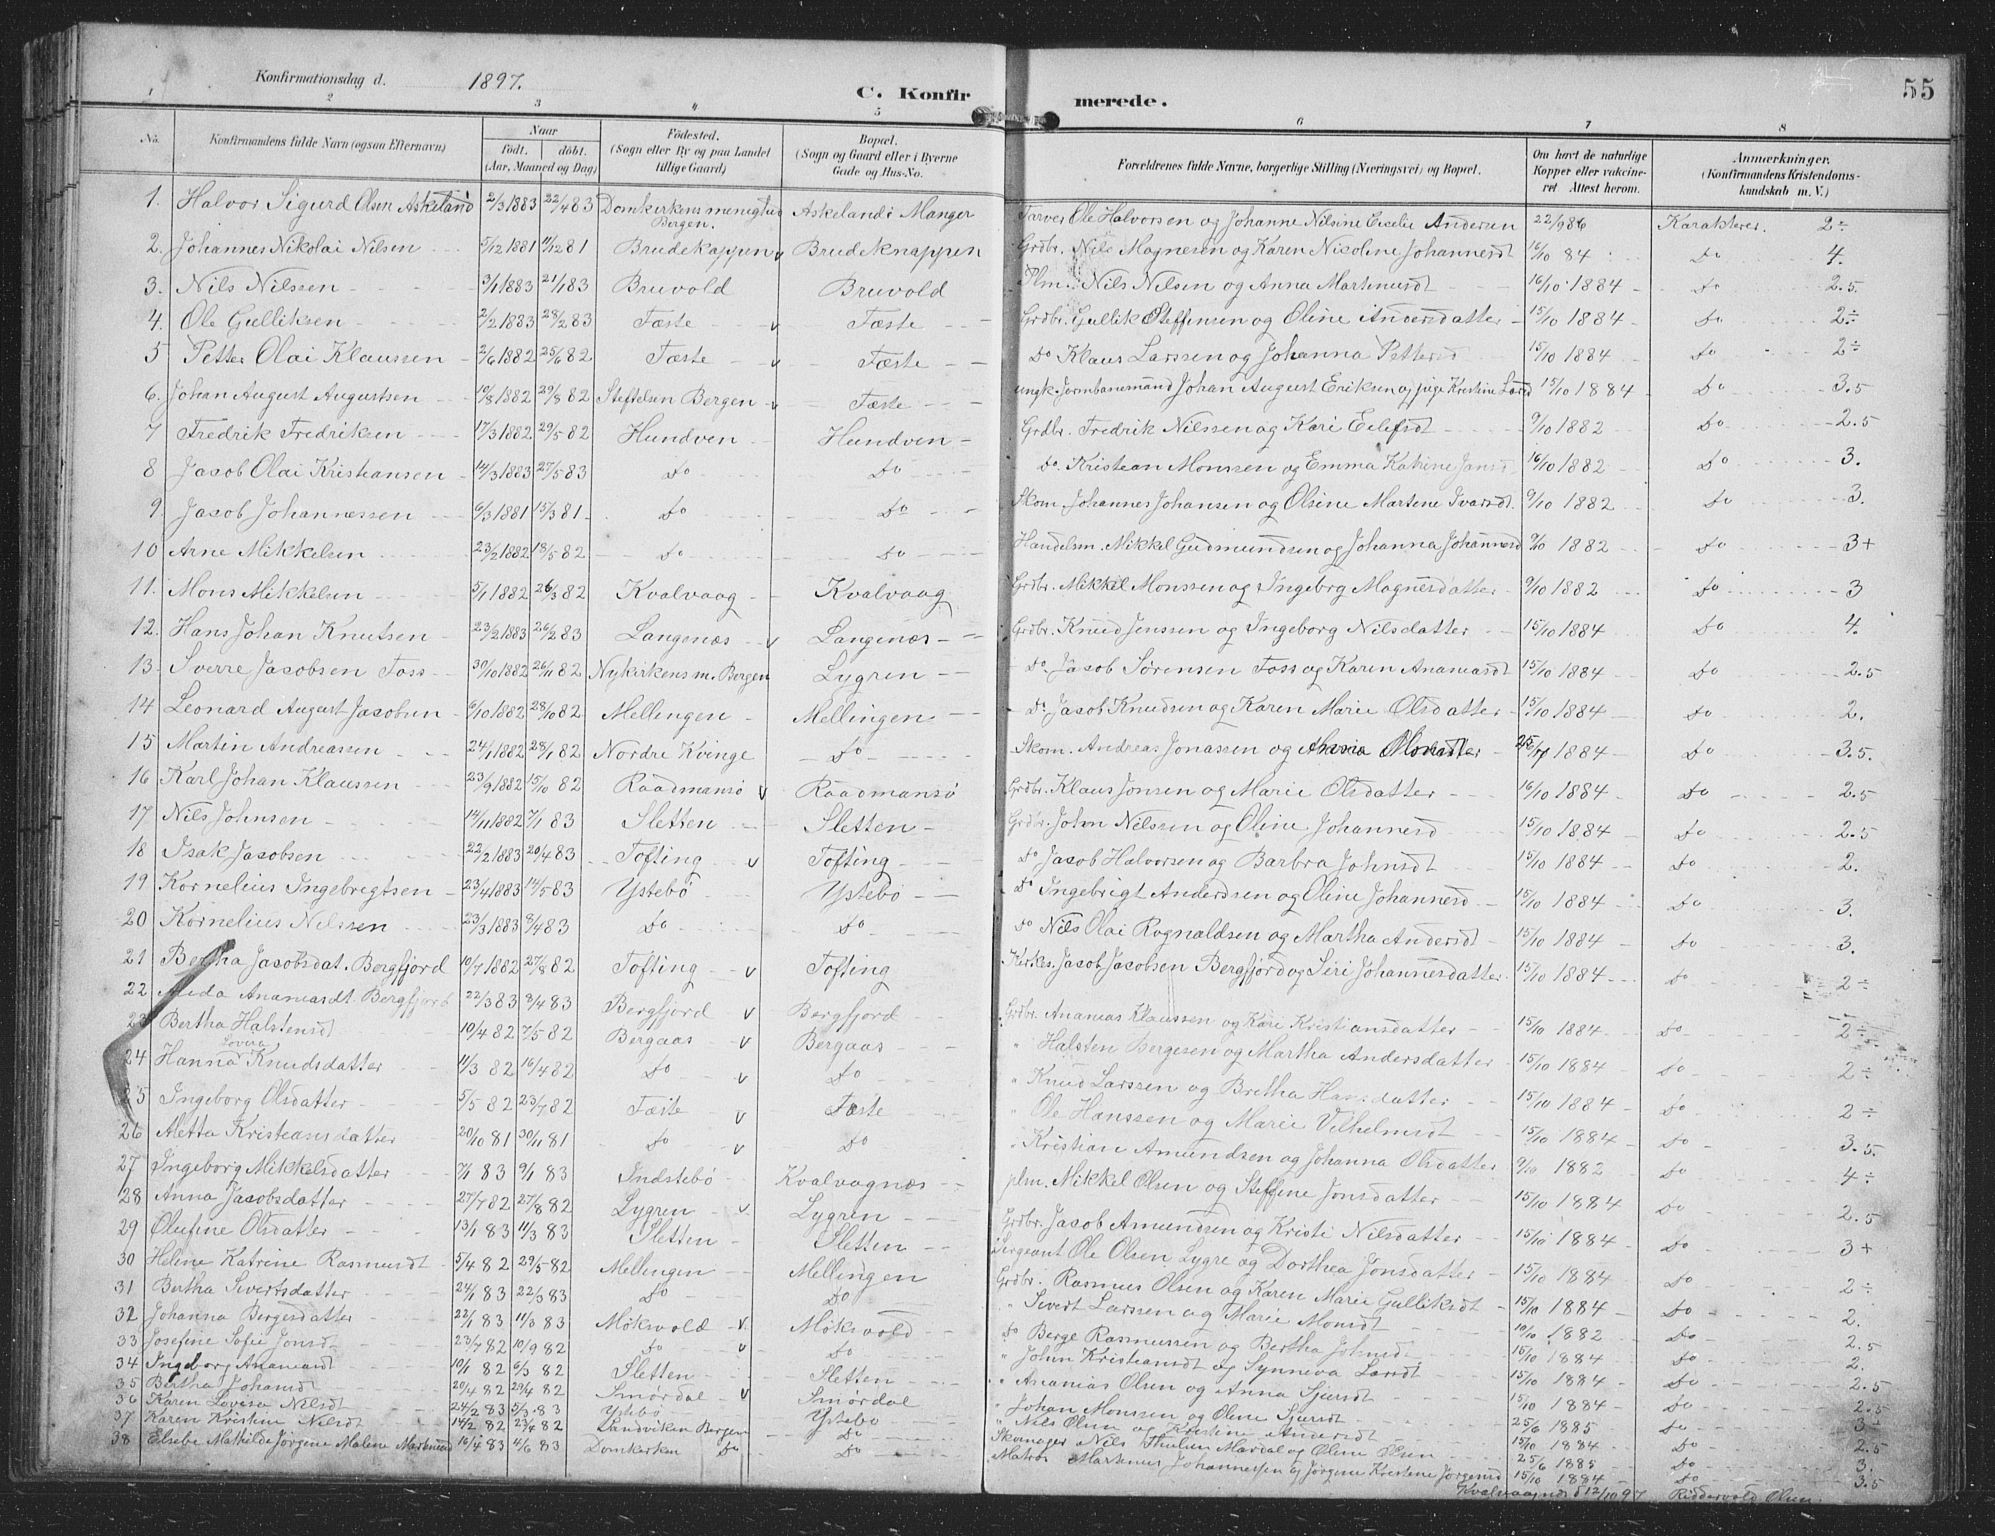 Konfirmationsdag d. 1897.
C. Konfirmerede.
55
1 2 3 " 5 6 7 8
No. Konfirmandens fulde Navn (ogsaa Efternavn) Naar födt. döbt. (Aar, Maaned og Dag) Födested. (Sogn eller By og paa Landet tillige Gaard) Bopæl. (Sogn og Gaard eller i Byerne Gade og Hus-No. Forældrenes fulde Navne, borgerlige Stilling (Næringsvei) og Bopæl. Om havt de naturlige Kopper eller vakcineret Attest herom. Anmærkninger. (Konfirmandens Kristendomskundskab m. V.)
1. Halvor Sigurd Olsen Askeland 2/3 1883 22/4 83 Domkirkens menighed Bergen. Askeland i Manger Farver Ole Halvorsen og Johanne Nilsine Andersen 22/9 86 Karakterer. 2÷
2. Johannes Nikolai Nilsen 5/12 1881 11/12 81 Brudeknappen v Brudeknappen Grdbr. Nils Magnesen og Karen Nicoline Johannesdt 16/10 84 Do 4.
3. Nils Nilssen 3/1 1883 21/1 83 Bruvold Bruvold Plm. Nils Nilsen og Anna Martinusdt 16/10 1884 Do 2.5.
4. Ole Gulliksen 2/2 1883 28/2 83 Fæste v Fæste Grdbr. Gullik Steffensen og Oline Andersdatter 15/10 1884 Do 2÷
5 Petter Olai Klaussen 2/6 1882 25/6 82 Fæste v Fæste Do Klaus Larssen og Johanna Pettersd 15/10 1884 Do 2÷
6. Johan August Augustsen 10/8 1882 29/8 82 Stiftelsen Bergen v Fæste ungk. Jernbanemand Johan August Eriksen og pige Kristine Larsd 15/10 1884 Do 3.5
7 Fredrik Fredriksen 17/3 1882 29/5 82 Hundven Hundven Grdbr. Fredrik Nilssen og Kari Eilefsdt 9/10 1882 Do 2.5
8 Jacob Olai Kristiansen 14/3 1883 27/5 83 Do Do Do Kristian Monssen og Emma Katrine Jansd 16/10 1882 Do 3.
9 Jacob Johannessen 6/3 1881 15/3 81 Do Do Skom. Johannes Johansen og Olsine Martine Ivarsdt. 9/10 1882 Do 3.
10 Arne Mikkelsen 23/2 1882 18/5 82 Do Do Handelsm. Mikkel Gudmundsen og Johanna Johannesd 9/10 1882 Do 3+
11. Mons Mikkelsen 5/1 1882 26/3 82 Kvalvaag Kvalvaag Grdbr. Mikkel Monssen og Ingeborg Magnesdatter 9/10 1882 Do 3
12. Hans Johan Knutsen 23/2 1883 26/2 83 Langenæs v Langenæs Grdbr. Knud Jenssen og Ingeborg Nilsdatter 15/10 1884 Do 4.
13. Sverre Jacobsen Foss 30/10 1882 26/11 82 Nykirkens m. Bergen Lygren Do Jacob Sørensen Foss og Karen Ananiasdt 15/10 1884 Do 2.5
14 Leonard August Jacobsen 6/10 1882 28/10 82 Mellingen Mellingen Do Jacob Knudsen og Karen Marie Olsdatter 15/10 1884 Do 2.
15 Martin Andreassen 24/1 1882 28/1 82 Nordre Kvinge Do Skom. Andreas Jonassen og 1884 Do 3.5
16 Karl Johan Klaussen 23/9 1882 15/10 82 Raadmansø v Raadmansø Grdbr. Klaus Jonsen og Marie Olsdatter 16/10 1884 Do 2.5
17 Nils Johnsen 14/11 1882 7/1 83 Sletten Sletten Grdbr. John Nilssen og Oline Johannesd 15/10 1884 Do 2.5
18 Isak Jacobsen 22/2 1883 20/4 83 Tofting v Tofting Do Jacob Halvorsen og Barbra Johnsdt 15/10 1884 Do 2.
19 Kornelius Ingebrigtsen 23/4 1883 14/5 83 Ystebö Ystebö Do Ingebrigt Anderssen og Oline Johannesd 15/10 1884 Do 3.
20 Kornelius Nilssen 23/3 1883 8/4 83 Do Do Do Nils Olai Rognaldsen og Martha Andersdt 15/10 1884 Do 3.
21 Bertha Jacobsdat. Bergfjord 10/7 1882 27/8 82 Tofting v Tofting Kirkes. Jacob Jacobsen Bergfjord og Siri Johannesdatter 15/10 1884 Do 2÷
22 Ananiasdt. Bergfjord 22/3 83 3/4 83 Bergfjord v Bergfjord Grdbr. Ananias Klaussen og Kari Kristiansdatter 15/10 1884 Do 2÷
23 Bertha Halstensdt 10/4 82 7/5 82 Bergaas v Bergaas " Halsten Bergesen og Martha Andersdatter 15/10 1884 Do 2÷
24 Hanna Lovisa Knudsdatter 11/3 82 16/4 82 Do v Do " Knud Larssen og Bretha Hansdatter 15/10 1884 Do 2÷
25 Ingeborg Olsdatter 5/5 82 23/7 82 Fæste v Fæste " Ole Hanssen og Marie Vilhelmsdt 15/10 1884 Do 3.5.
26 Aletta Kristiansdatter 20/10 81 30/11 81 Do v Do " Kristian Amundsen og Johanna Olsdatter 9/10 1882 Do 4÷
27 Ingeborg Mikkelsdatter 7/1 83 9/1 83 Indstebö Kvalvagnæs plm. Mikkel Olsen og Steffine Jonsdatter 15/10 1884 Do 2.5
28 Anna Jacobsdatter 27/7 82 27/8 82 Lygren v Lygren Grdbr. Jacob Amundsen og Kristi Nilsdatter 15/10 1884 Do 3+
29 Olufine Olsdatter 13/1 83 11/3 83 Sletten Sletten Sergeant Ole Olsen Lygre og Dorthea Jonsdatter 15/10 1884 Do 2÷
30 Heline Katrine Rasmusdt 5/4 82 29/5 82 Mellingen Mellingen Grdbr. Rasmus Olsen og Karen Marie Gulliksdt 15/10 1884 Do 2.
31 Bertha Sivertsdatter 24/1 83 22/3 83 Do Do " Sivert Larssen og Marie Monsdt 10/10 1882 Do 2.5
32 Johanna Bergesdatter 22/1 83 11/3 83 Mökevold v Mökevold Do Berge Rasmussen og Bertha Johnsdt 15/10 1884 Do 2.
33 Josefine Sofie Jonsd 23/7 82 10/9 82 Do v Do " John Kristiansdt og Synneva Larsdt 15/10 1884 Do 2.5
34 Ingeborg Ananiasdt 10/1 82 6/3 82 Sletten Sletten " Ananias Olsen og Anna Sjursdt 15/10 1884 Do 2.5
35 Bertha Johansdt 20/4 82 29/4 82 Smørdal v Smørdal " Johan Monssen og Oline Sjursdt 25/6 1885 Do 3÷
36 Karen Lovisa Nilsdt 24/2 83 5/3 83 Ystebö Ystebö " Nils Olsen og Kristine Andersdt 15/10 1884 Do 2.5
37 Karen Kristine Nilsdt 14/2 82 23/4 82 Sandviken Bergen Do Nils Mardal og Oline Olsen 25/6 1885 Do 3.
38 Elsebe Mathilde Jørgine Malene Martinusd 16/4 83 4/6 83 Domkirken Do Do Matros Martinus Johannessen og Jørgine Kristine Jørgensd 15/10 1884 Do 3.5
Kvalvaagnes d 12/10 97 Riddervold Olsen.